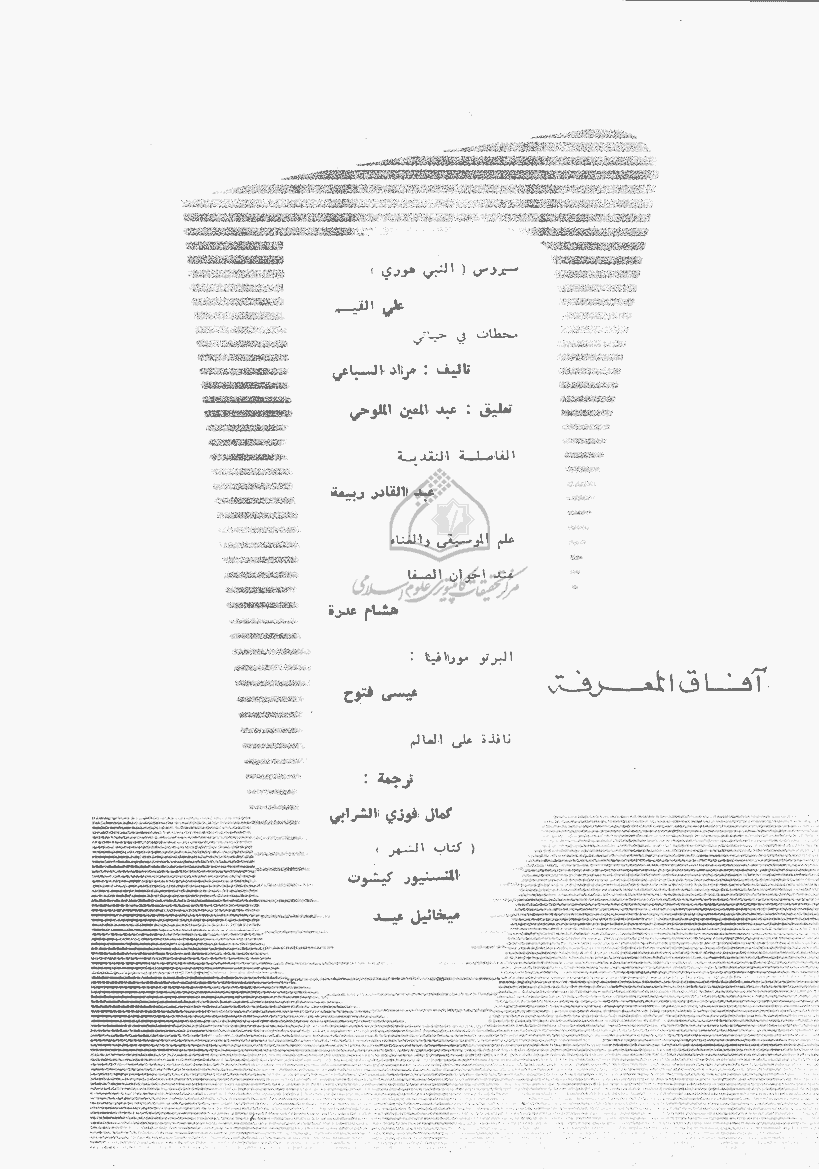 سيروس ( النبي هوري )
علي القيــم
محطات في حياتي
تأليف : مراد السباعي
تعليق : عبد المعين الملوحي
الفاصلــة النقديــة
عبد القادر ربيعة
علم الموسيقى والغناء
عند اخوان الصفا
مركز تحقيقات كامپيوتري علوم اسلامي
هشام عدرة
البرتو مورافيا :
عيسى فتوح
آفــاق المعــرفــة
نافذة على العالم
ترجمة :
كمال فوزي الشرابي
( كتاب الشهر
المنسيور كيشوت
ميخائيل عيــد